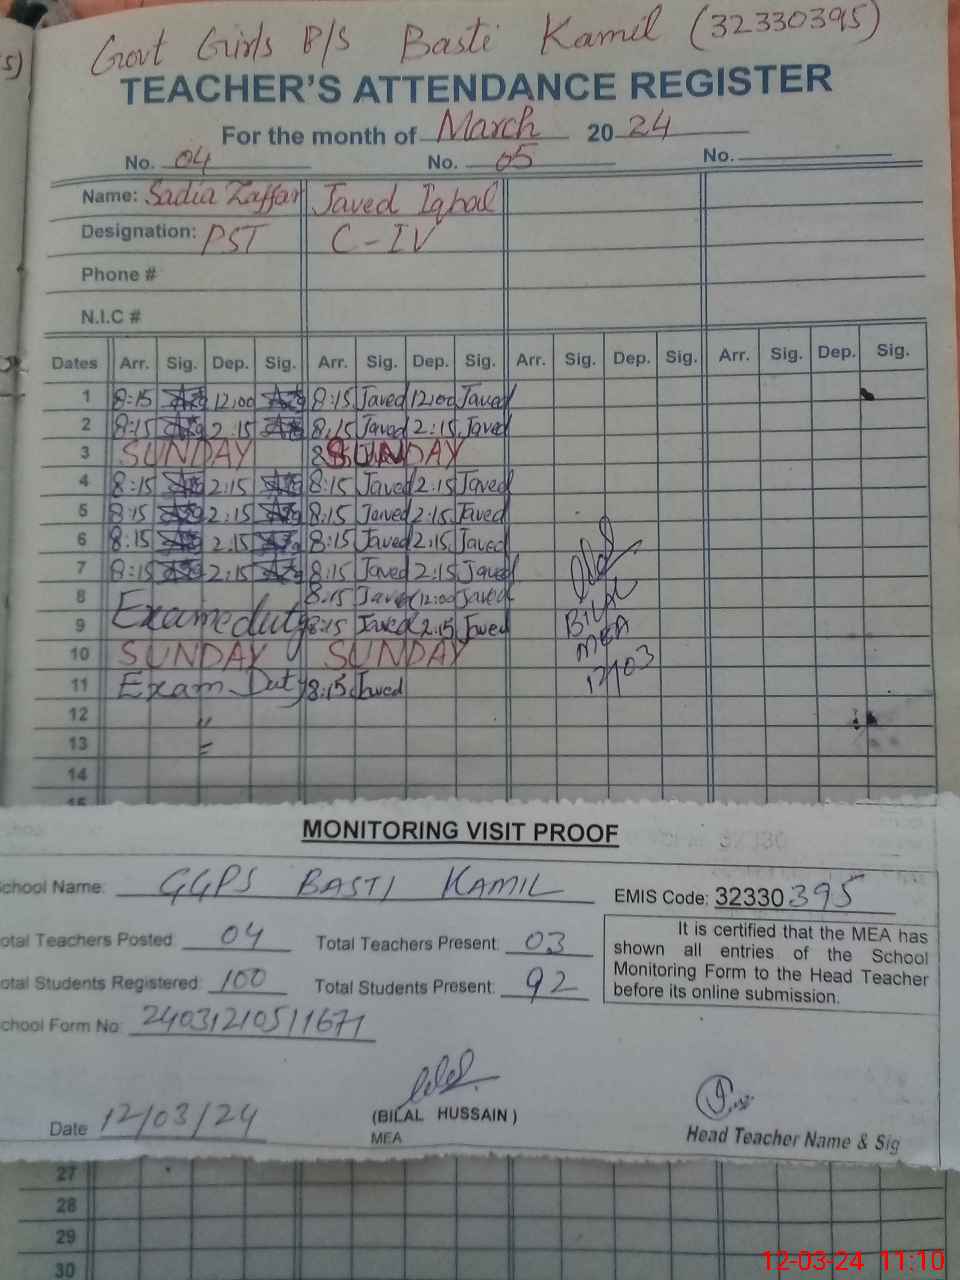 s)
Govt Girls P/S Basti Kamil (32330395)
TEACHER'S ATTENDANCE REGISTER
For the month of March 20 24
No. 04 No. 05 No.
Name: Sadia Zaffar Javed Iqbal
Designation: PST C-IV
Phone #
N.I.C #
Dates Arr. Sig. Dep. Sig. Arr. Sig. Dep. Sig. Arr. Sig. Dep. Sig. Arr. Sig. Dep. Sig.
1 8:15 12:00 8:15 Javed 12:00 Javed
2 8:15 2:15 8:15 Javed 2:15 Javed
3 SUNDAY SUNDAY
4 8:15 2:15 8:15 Javed 2:15 Javed
5 8:15 2:15 8:15 Javed 2:15 Javed
6 8:15 2:15 8:15 Javed 2:15 Javed
7 8:15 2:15 8:15 Javed 2:15 Javed
8 8:15 Javed 12:00 Javed
9 Exame duty 8:15 Javed 2:15 Javed
10 SUNDAY SUNDAY
11 Exam Duty 8:15 Javed
12 "
13 =
14
15
BILAL
MEA
12/03
MONITORING VISIT PROOF
chool Name: GGPS BASTI KAMIL
EMIS Code: 32330395
otal Teachers Posted: 04 Total Teachers Present: 03
otal Students Registered: 100 Total Students Present: 92
It is certified that the MEA has
shown all entries of the School
Monitoring Form to the Head Teacher
before its online submission.
chool Form No: 24031210511671
Date 12/03/24
(BILAL HUSSAIN)
MEA
Head Teacher Name & Sig
27
28
29
30
12-03-24 11:10